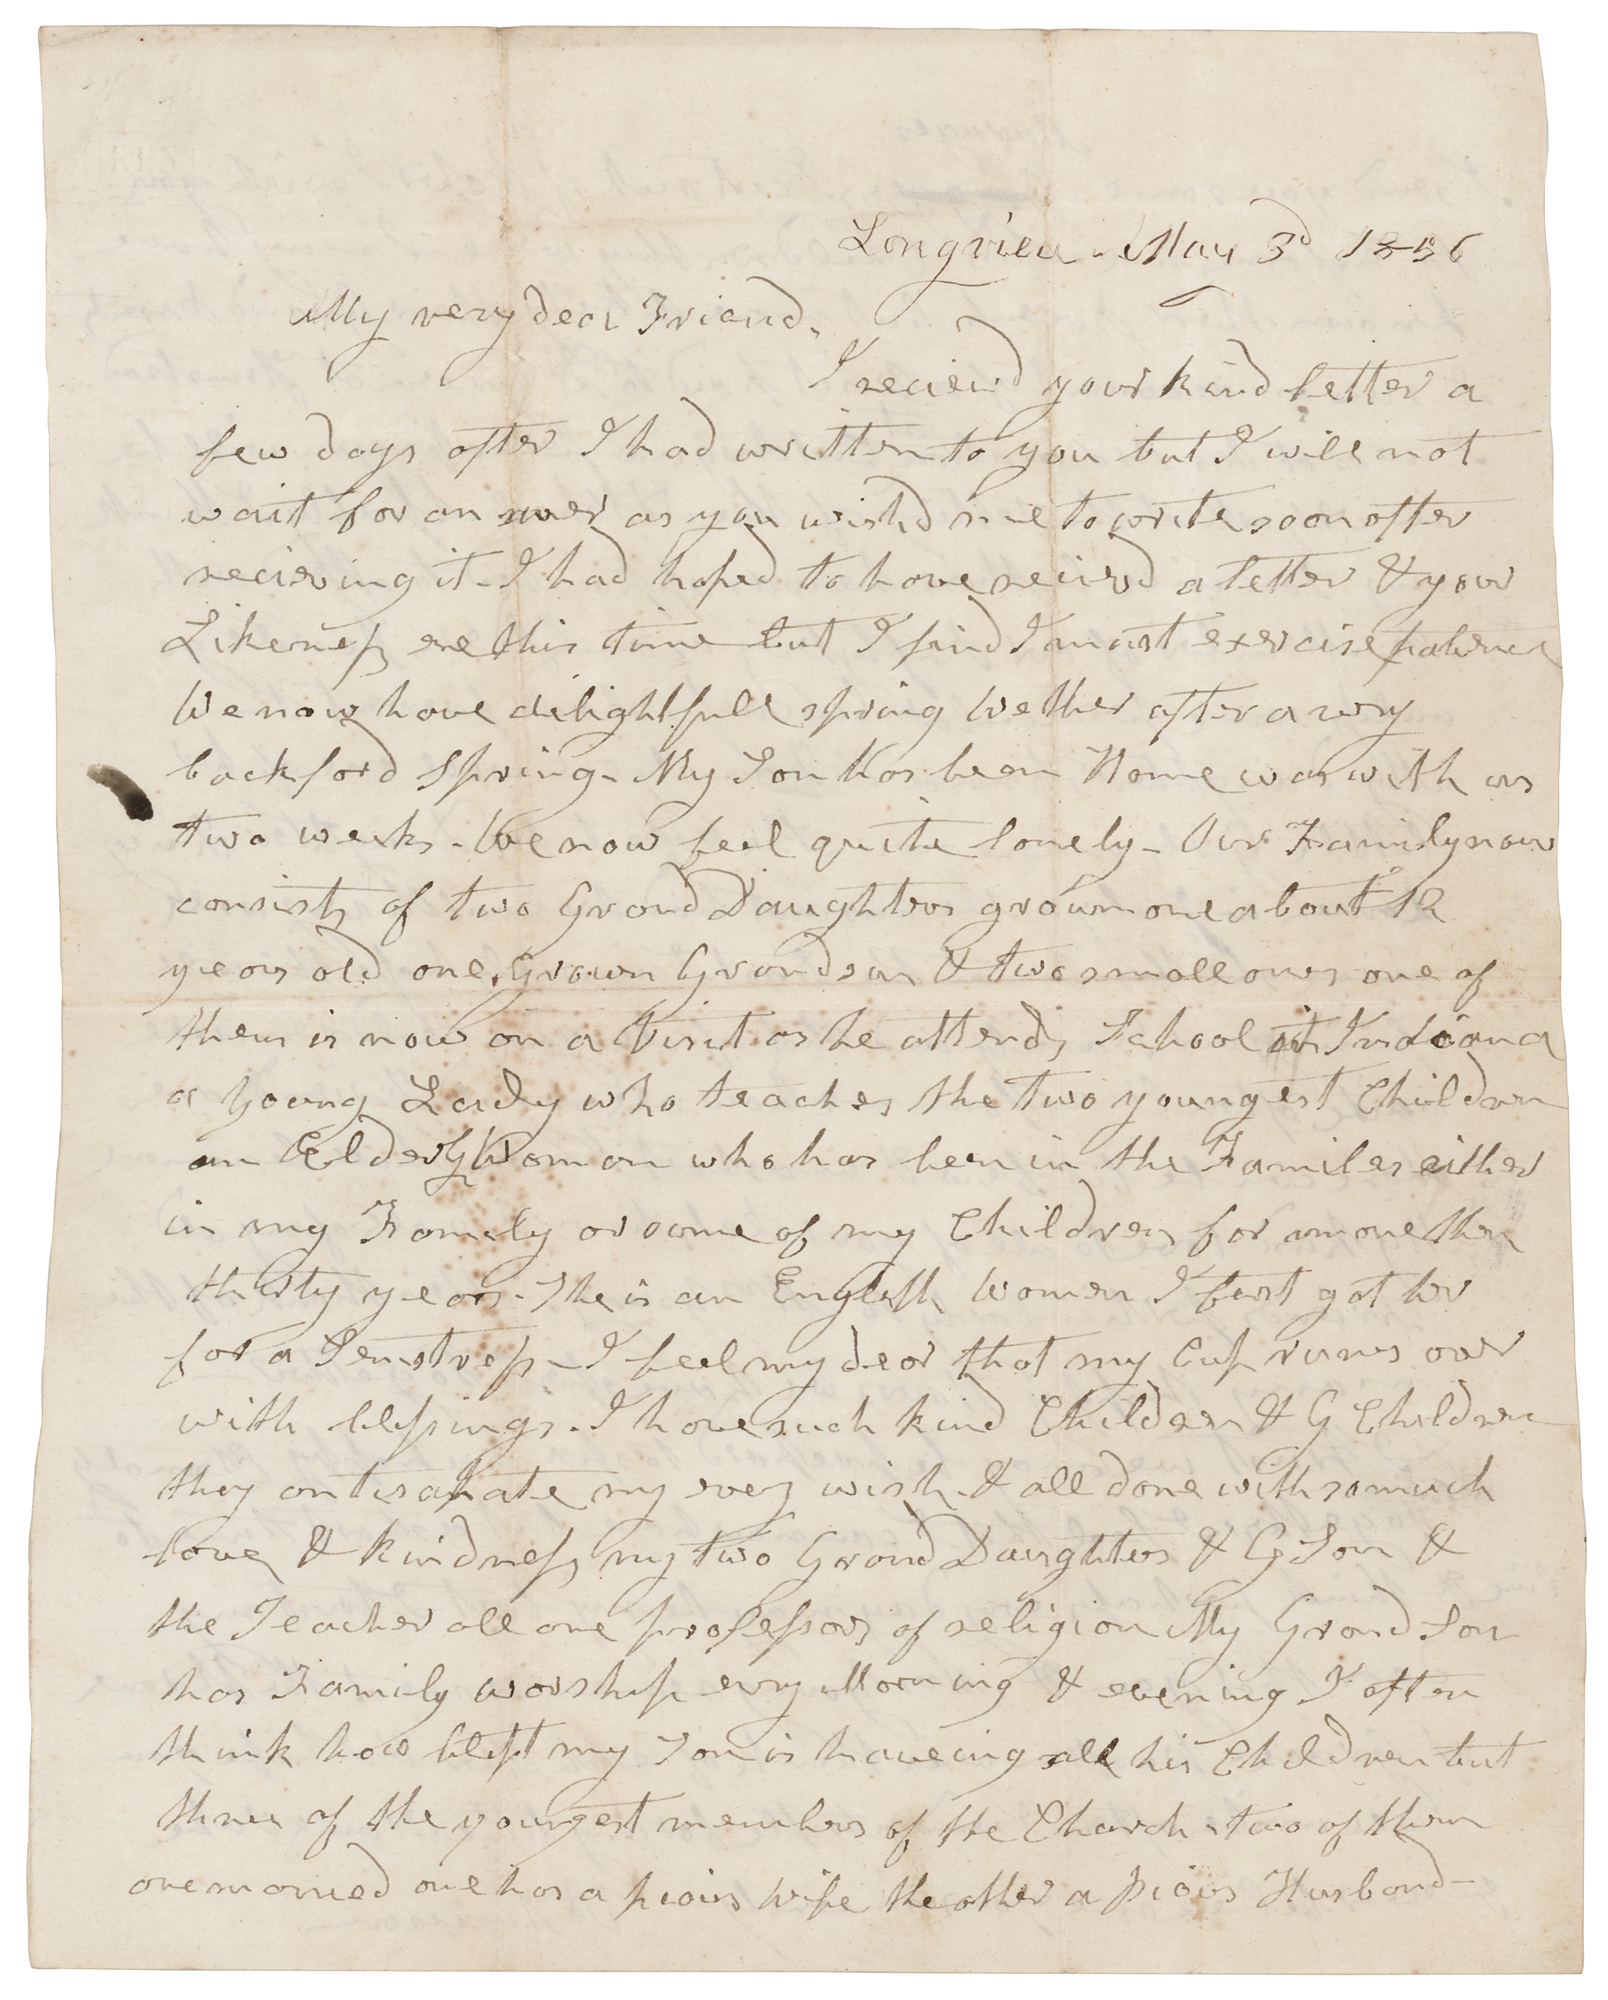 Longview May 3d 1856
My very dear Friend,
I recievd your kind letter a
few days after I had written to you but I will not
wait for an answer as you wishd me to write soon after
recieving it - I had hoped to have recievd a letter & your
Likeness ere this time but I find I must exercise patience
We now have delightfull spring Wether after a very
backford Spring - My Son has been Home was with us
two weeks - We now feel quite lonely - Our Family now
consists of two Grand Daughters grown one about 12
years old one Grown Grandson & two small ones one of
them is now on a Visit as he attends School in Indiana
a Young Lady who teaches the two youngest Children
an Elderly Woman who has been in the Familes either
in my Family or some of my Children for more then
thirty years - She is an English Women I first got her
for a Semstress - I feel my dear that my Cup runs over
with blessings - I have such kind Children & G Children
they antisapate my every wish & all done with so much
love & kindness my two Grand Daughters & G Son &
the Teacher all are professors of religion My Grand Son
has Family worship every Morning & evening I often
think how blest my Son is haveing all his Children but
three of the youngest members of the Church - two of them
are married one has a pious Wife the other a pious Husband -